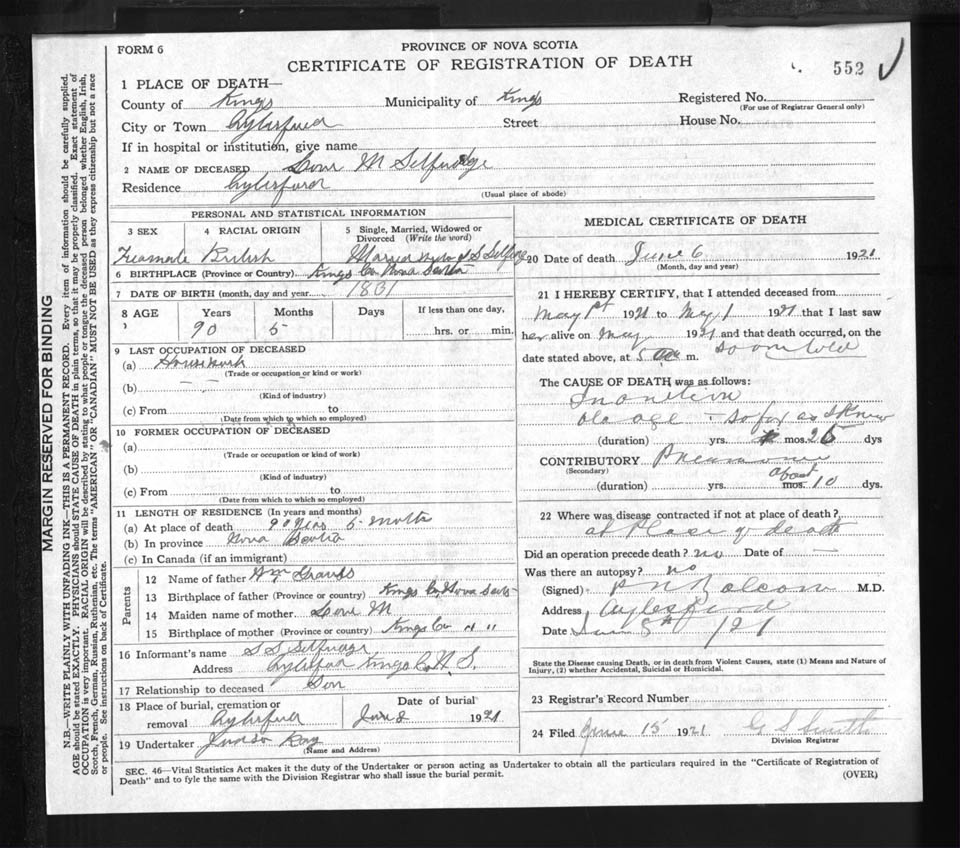 FORM 6
PROVINCE OF NOVA SCOTIA
CERTIFICATE OF REGISTRATION OF DEATH
552
1 PLACE OF DEATH—
County of Kings Municipality of Kings Registered No.
(For use of Registrar General only)
City or Town Street House No.
If in hospital or institution, give name
2 NAME OF DECEASED M Selfridge
Residence
(Usual place of abode)
PERSONAL AND STATISTICAL INFORMATION
3 SEX 4 RACIAL ORIGIN 5 Single, Married, Widowed or Divorced (Write the word)
British S S
6 BIRTHPLACE (Province or Country) Kings Co Nova Scotia
7 DATE OF BIRTH (month, day and year
8 AGE Years Months Days If less than one day,
90 5 hrs. or min.
9 LAST OCCUPATION OF DECEASED
(a) Housework
(Trade or occupation or kind or work)
(b)
(Kind of industry)
(c) From to
(Date from which to which so employed)
10 FORMER OCCUPATION OF DECEASED
(a)
(Trade or occupation or kind or work)
(b)
(Kind of industry)
(c) From to
(Date from which to which so employed)
11 LENGTH OF RESIDENCE (In years and months)
(a) At place of death 90 years 5
(b) In province Nova Scotia
(c) In Canada (if an immigrant)
Parents
12 Name of father Wm
13 Birthplace of father (Province or country) Kings Co Nova
14 Maiden name of mother M
15 Birthplace of mother (Province or country) Kings Co " "
16 Informant's name S S Selfridge
Address Kings Co N S.
17 Relationship to deceased Son
18 Place of burial, cremation or removal
Date of burial
June 8 1921
19 Undertaker
(Name and Address)
MEDICAL CERTIFICATE OF DEATH
20 Date of death June 6 1921
(Month, day and year)
21 I HEREBY CERTIFY, that I attended deceased from
May 1st 1921 to May 1921 that I last saw
her alive on May 1921 and that death occurred, on the
date stated above, at 5 m. so am told
The CAUSE OF DEATH was as follows:
Inanition
old age - so far as I know
(duration) yrs. mos. dys
CONTRIBUTORY
(Secondary)
(duration) yrs. mos. about 10 dys.
22 Where was disease contracted if not at place of death?
at place of death
Did an operation precede death? no Date of —
Was there an autopsy? no
(Signed) M.D.
Address Aylesford
Date
State the Disease causing Death, or in death from Violent Causes, state (1) Means and Nature of
Injury, (2) whether Accidental, Suicidal or Homicidal.
23 Registrar's Record Number
24 Filed June 15 1921 G S
Division Registrar
SEC. 46—Vital Statistics Act makes it the duty of the Undertaker or person acting as Undertaker to obtain all the particulars required in the "Certificate of Registration of
Death" and to fyle same with the Division Registrar who shall issue the burial permit.
(OVER)
MARGIN RESERVED FOR BINDING
N.B.—WRITE PLAINLY WITH UNFADING INK—THIS IS A PERMANENT RECORD. Every item of information should be carefully supplied.
AGE should be stated EXACTLY. PHYSICIANS should STATE CAUSE OF DEATH in plain terms, so that it may be properly classified. Exact statement of
OCCUPATION is very important. RACIAL ORIGIN will be described by stating to what people or tongue the deceased person belonged whether English, Irish,
Scotch, French, German, Russian, Ruthenian, etc. The terms "AMERICAN" OR "CANADIAN" MUST NOT BE USED as they express citizenship but not a race
or people. See instructions on back of Certificate.